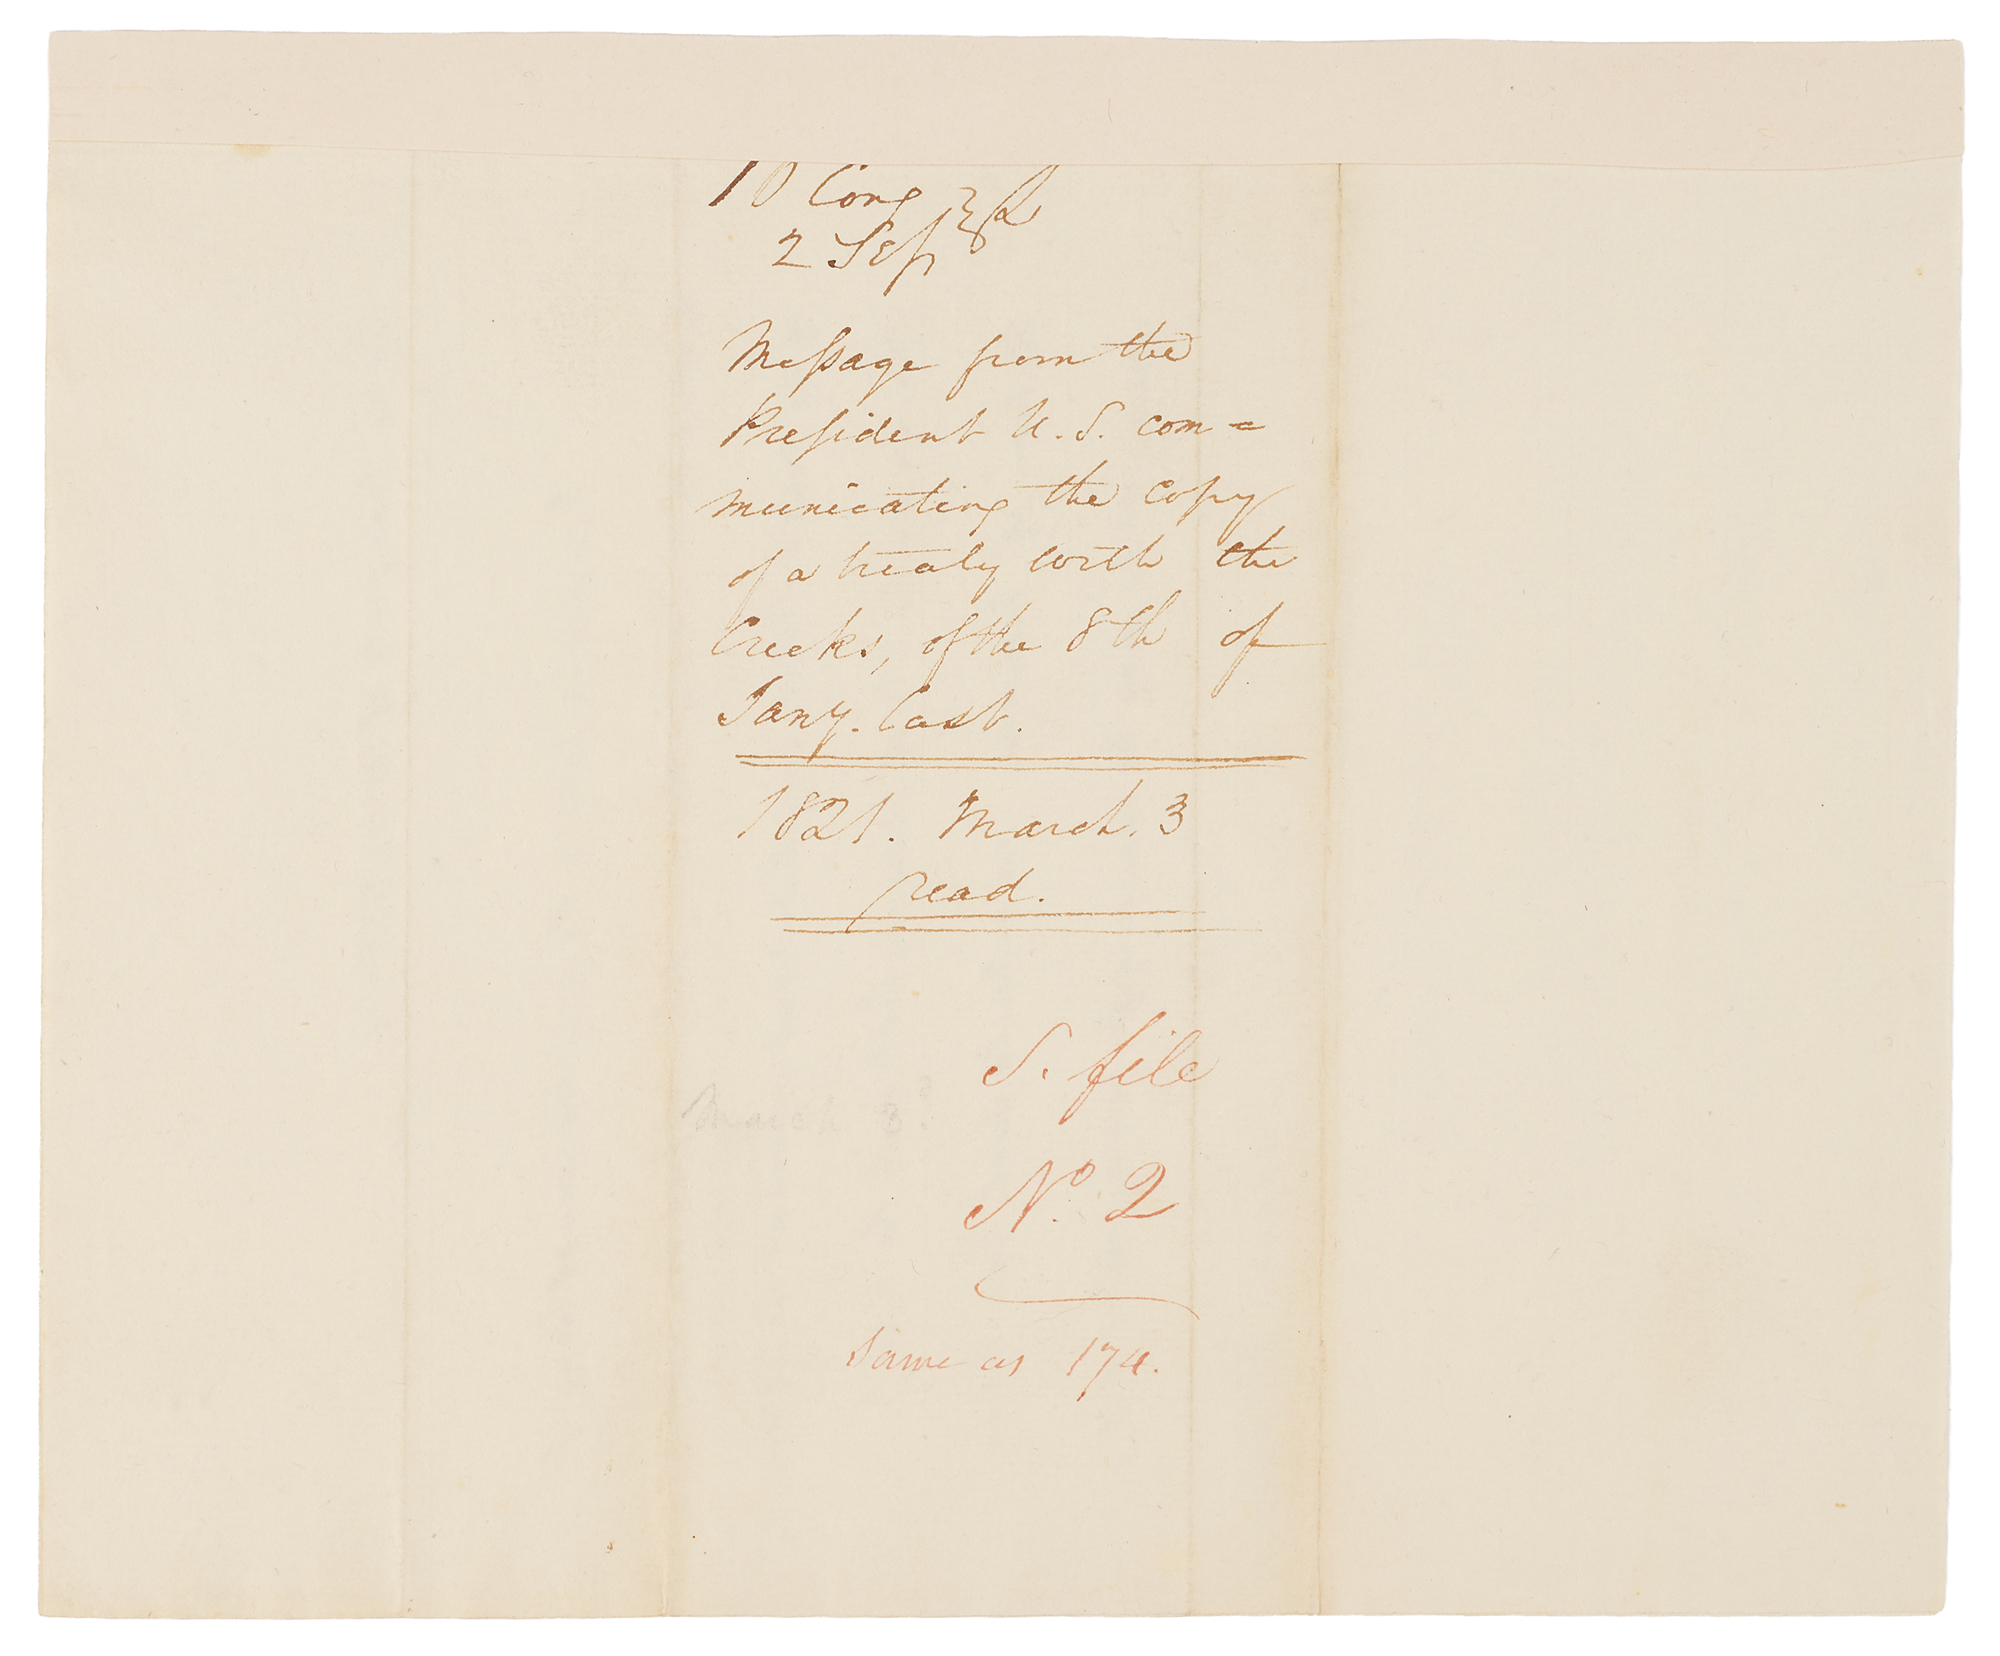 10 Cong
2 Sess
Message from the
President U.S. com=
municating the copy
of a treaty with the
Creeks, of the 8th of
Jany. last.
1821. March. 3
read.
S. file
March 3d
No. 2
Same as 174.